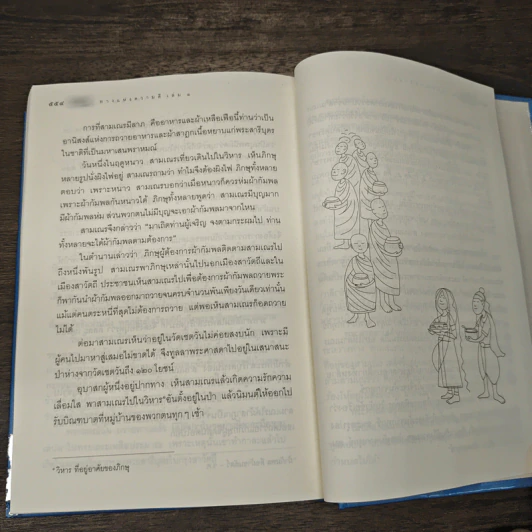 ๕๕๔ ทางแห่งความดี เล่ม ๑
การที่สามเณรมีลาภ คืออาหารและผ้าเหลือเฟือนี้ท่านว่าเป็น
อานิสงส์แห่งการถวายอาหารและผ้าสาฎกเนื้อหยาบแก่พระสารีบุตร
ในชาติที่เป็นมหาเสนพราหมณ์
วันหนึ่งในฤดูหนาว สามเณรเที่ยวเดินไปในวิหาร เห็นภิกษุ
หลายรูปนั่งผิงไฟอยู่ สามเณรถามว่า ทำไมจึงต้องผิงไฟ ภิกษุทั้งหลาย
ตอบว่า เพราะหนาว สามเณรบอกว่าเมื่อหนาวก็ควรห่มผ้ากัมพล
เพราะผ้ากัมพลกันหนาวได้ ภิกษุทั้งหลายพูดว่า สามเณรมีบุญมาก
มีผ้ากัมพลห่ม ส่วนพวกตนไม่มีบุญจะเอาผ้ากัมพลมาจากไหน
สามเณรจึงกล่าวว่า "มาเถิดท่านผู้เจริญ จงตามกระผมไป ท่าน
ทั้งหลายจะได้ผ้ากัมพลตามต้องการ"
ในตำนานเล่าว่า ภิกษุผู้ต้องการผ้ากัมพลติดตามสามเณรไป
ถึงหนึ่งพันรูป สามเณรพาภิกษุเหล่านั้นไปนอกเมืองสาวัตถีและใน
เมืองสาวัตถี ประชาชนเห็นสามเณรไปเพื่อต้องการผ้ากัมพลถวายพระ
ก็พากันนำผ้ากัมพลออกมาถวายจนครบจำนวนพันเพียงวันเดียวเท่านั้น
แม้แต่คนตระหนี่ที่สุดไม่ต้องการถวาย แต่พอเห็นสามเณรก็อดถวาย
ไม่ได้
ต่อมาสามเณรเห็นว่าอยู่ในวัดเชตวันไม่ค่อยสงบนัก เพราะมี
ผู้คนไปมาหาสู่เสมอไม่ขาดได้ จึงทูลลาพระศาสดาไปอยู่ในเสนาสนะ
ป่าห่างจากวัดเชตวันถึง ๑๒๐ โยชน์
อุบาสกผู้หนึ่งอยู่ปากทาง เห็นสามเณรแล้วเกิดความรักความ
เลื่อมใส พาสามเณรไปในวิหาร*อันตั้งอยู่ในป่า แล้วนิมนต์ให้ออกไป
รับบิณฑบาตที่หมู่บ้านของพวกตนทุกๆ เช้า
* วิหาร ที่อยู่อาศัยของภิกษุ